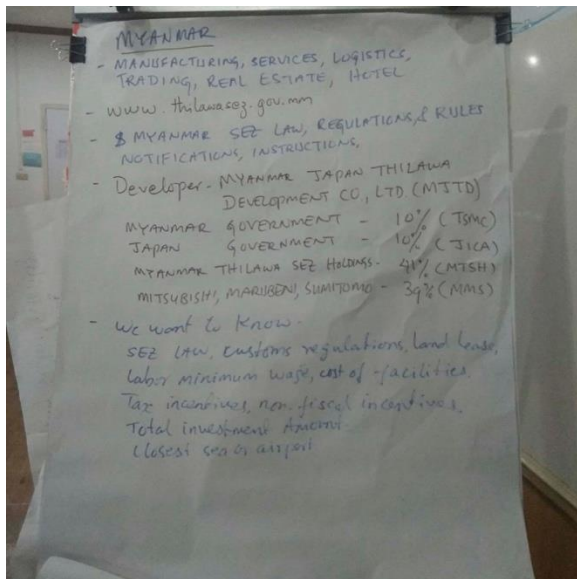 MYANMAR
- MANUFACTURING, SERVICES, LOGISTICS,
TRADING, REAL ESTATE, HOTEL
- www.thilawasez.gov.mm
- $ MYANMAR SEZ LAW, REGULATIONS, & RULES
NOTIFICATIONS, INSTRUCTIONS,
- Developer - MYANMAR JAPAN THILAWA
DEVELOPMENT CO., LTD (MJTD)
MYANMAR GOVERNMENT - 10% (TSMC)
JAPAN GOVERNMENT - 10% (JICA)
MYANMAR THILAWA SEZ HOLDINGS - 41% (MTSH)
MITSUBISHI, MARUBENI, SUMITOMO - 39% (MMS)
- We want to know -
SEZ LAW, customs regulations, land lease,
Labor minimum wage, cost of facilities,
Tax incentives, non-fiscal incentives,
Total investment Amount
Closest sea or airport